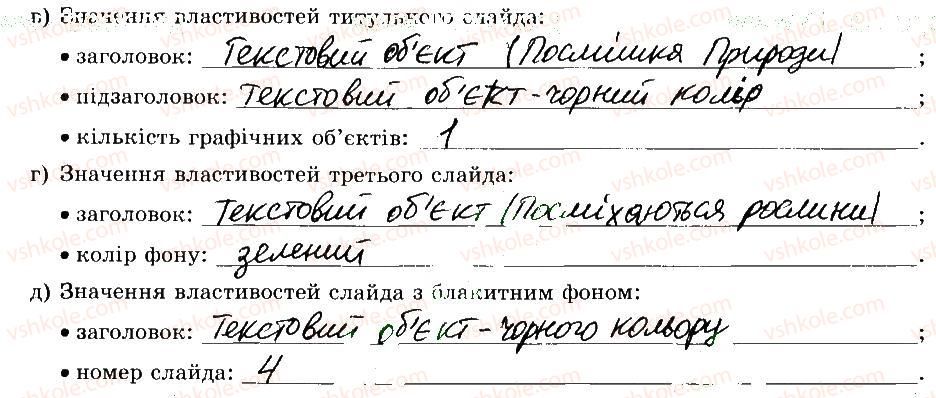 в) Значення властивостей титульного слайда:
• заголовок: Текстовий об'єкт (Посмішка Природи) ;
• підзаголовок: Текстовий об'єкт - чорний колір ;
• кількість графічних об'єктів: 1 .
г) Значення властивостей третього слайда:
• заголовок: Текстовий об'єкт (Посміхаються рослини) ;
• колір фону: зелений .
д) Значення властивостей слайда з блакитним фоном:
• заголовок: Текстовий об'єкт - чорного кольору ;
• номер слайда: 4 .